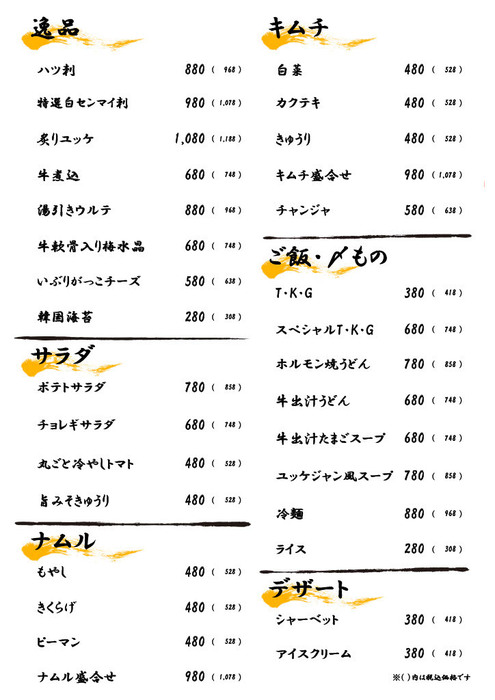 逸品
ハツ刺 880 ( 968)
特選白センマイ刺 980 (1,078)
炙りユッケ 1,080 (1,188)
牛煮込 680 ( 748)
湯引きウルテ 880 ( 968)
牛軟骨入り梅水晶 680 ( 748)
いぶりがっこチーズ 580 ( 638)
韓国海苔 280 ( 308)
サラダ
ポテトサラダ 780 ( 858)
チョレギサラダ 680 ( 748)
丸ごと冷やしトマト 480 ( 528)
旨みそきゅうり 480 ( 528)
ナムル
もやし 480 ( 528)
きくらげ 480 ( 528)
ピーマン 480 ( 528)
ナムル盛合せ 980 (1,078)
キムチ
白菜 480 ( 528)
カクテキ 480 ( 528)
きゅうり 480 ( 528)
キムチ盛合せ 980 (1,078)
チャンジャ 580 ( 638)
ご飯・〆もの
T・K・G 380 ( 418)
スペシャルT・K・G 680 ( 748)
ホルモン焼うどん 780 ( 858)
牛出汁うどん 680 ( 748)
牛出汁たまごスープ 680 ( 748)
ユッケジャン風スープ 780 ( 858)
冷麺 880 ( 968)
ライス 280 ( 308)
デザート
シャーベット 380 ( 418)
アイスクリーム 380 ( 418)
※( )内は税込価格です